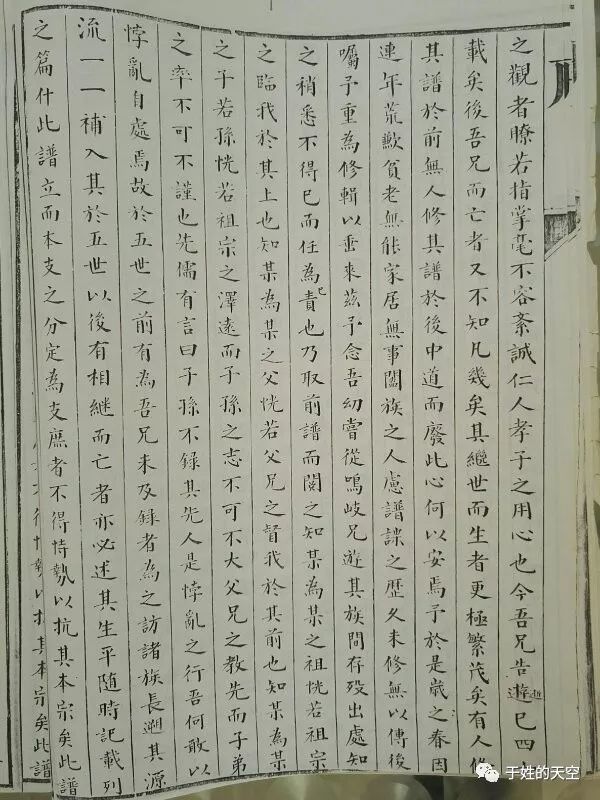 之觀者瞭若指掌毫不容紊誠仁人孝子之用心也今吾兄告遊已四十
逝
載矣後吾兄而亡者又不知凡幾矣其繼世而生者更極繁茂矣有人修
其譜於前無人修其譜於後中道而廢此心何以安焉予於是歲之春因
連年荒歉貧老無能家居無事闔族之人慮譜諜之歷久未修無以傳後
囑予重為修輯以垂來茲予念吾幼嘗從鳴岐兄遊其族間存歿出處知
之稍悉不得已而任為責也乃取前譜而閱之知某為某之祖恍若祖宗
己
之臨我於其上也知某為某之父恍若父兄之督我於其前也知某為某
之子若孫恍若祖宗之澤遠而子孫之志不可不大父兄之教先而子弟
之率不可不謹也先儒有言曰子孫不錄其先人是悖亂之行吾何敢以
悖亂自處焉故於五世之前有為吾兄未及錄者為之訪諸族長遡其源
流一一補入其於五世以後有相繼而亡者亦必述其生平隨時記載列
之篇什此譜立而本支之分定為支庶者不得恃勢以抗其本宗矣此譜
于姓的天空